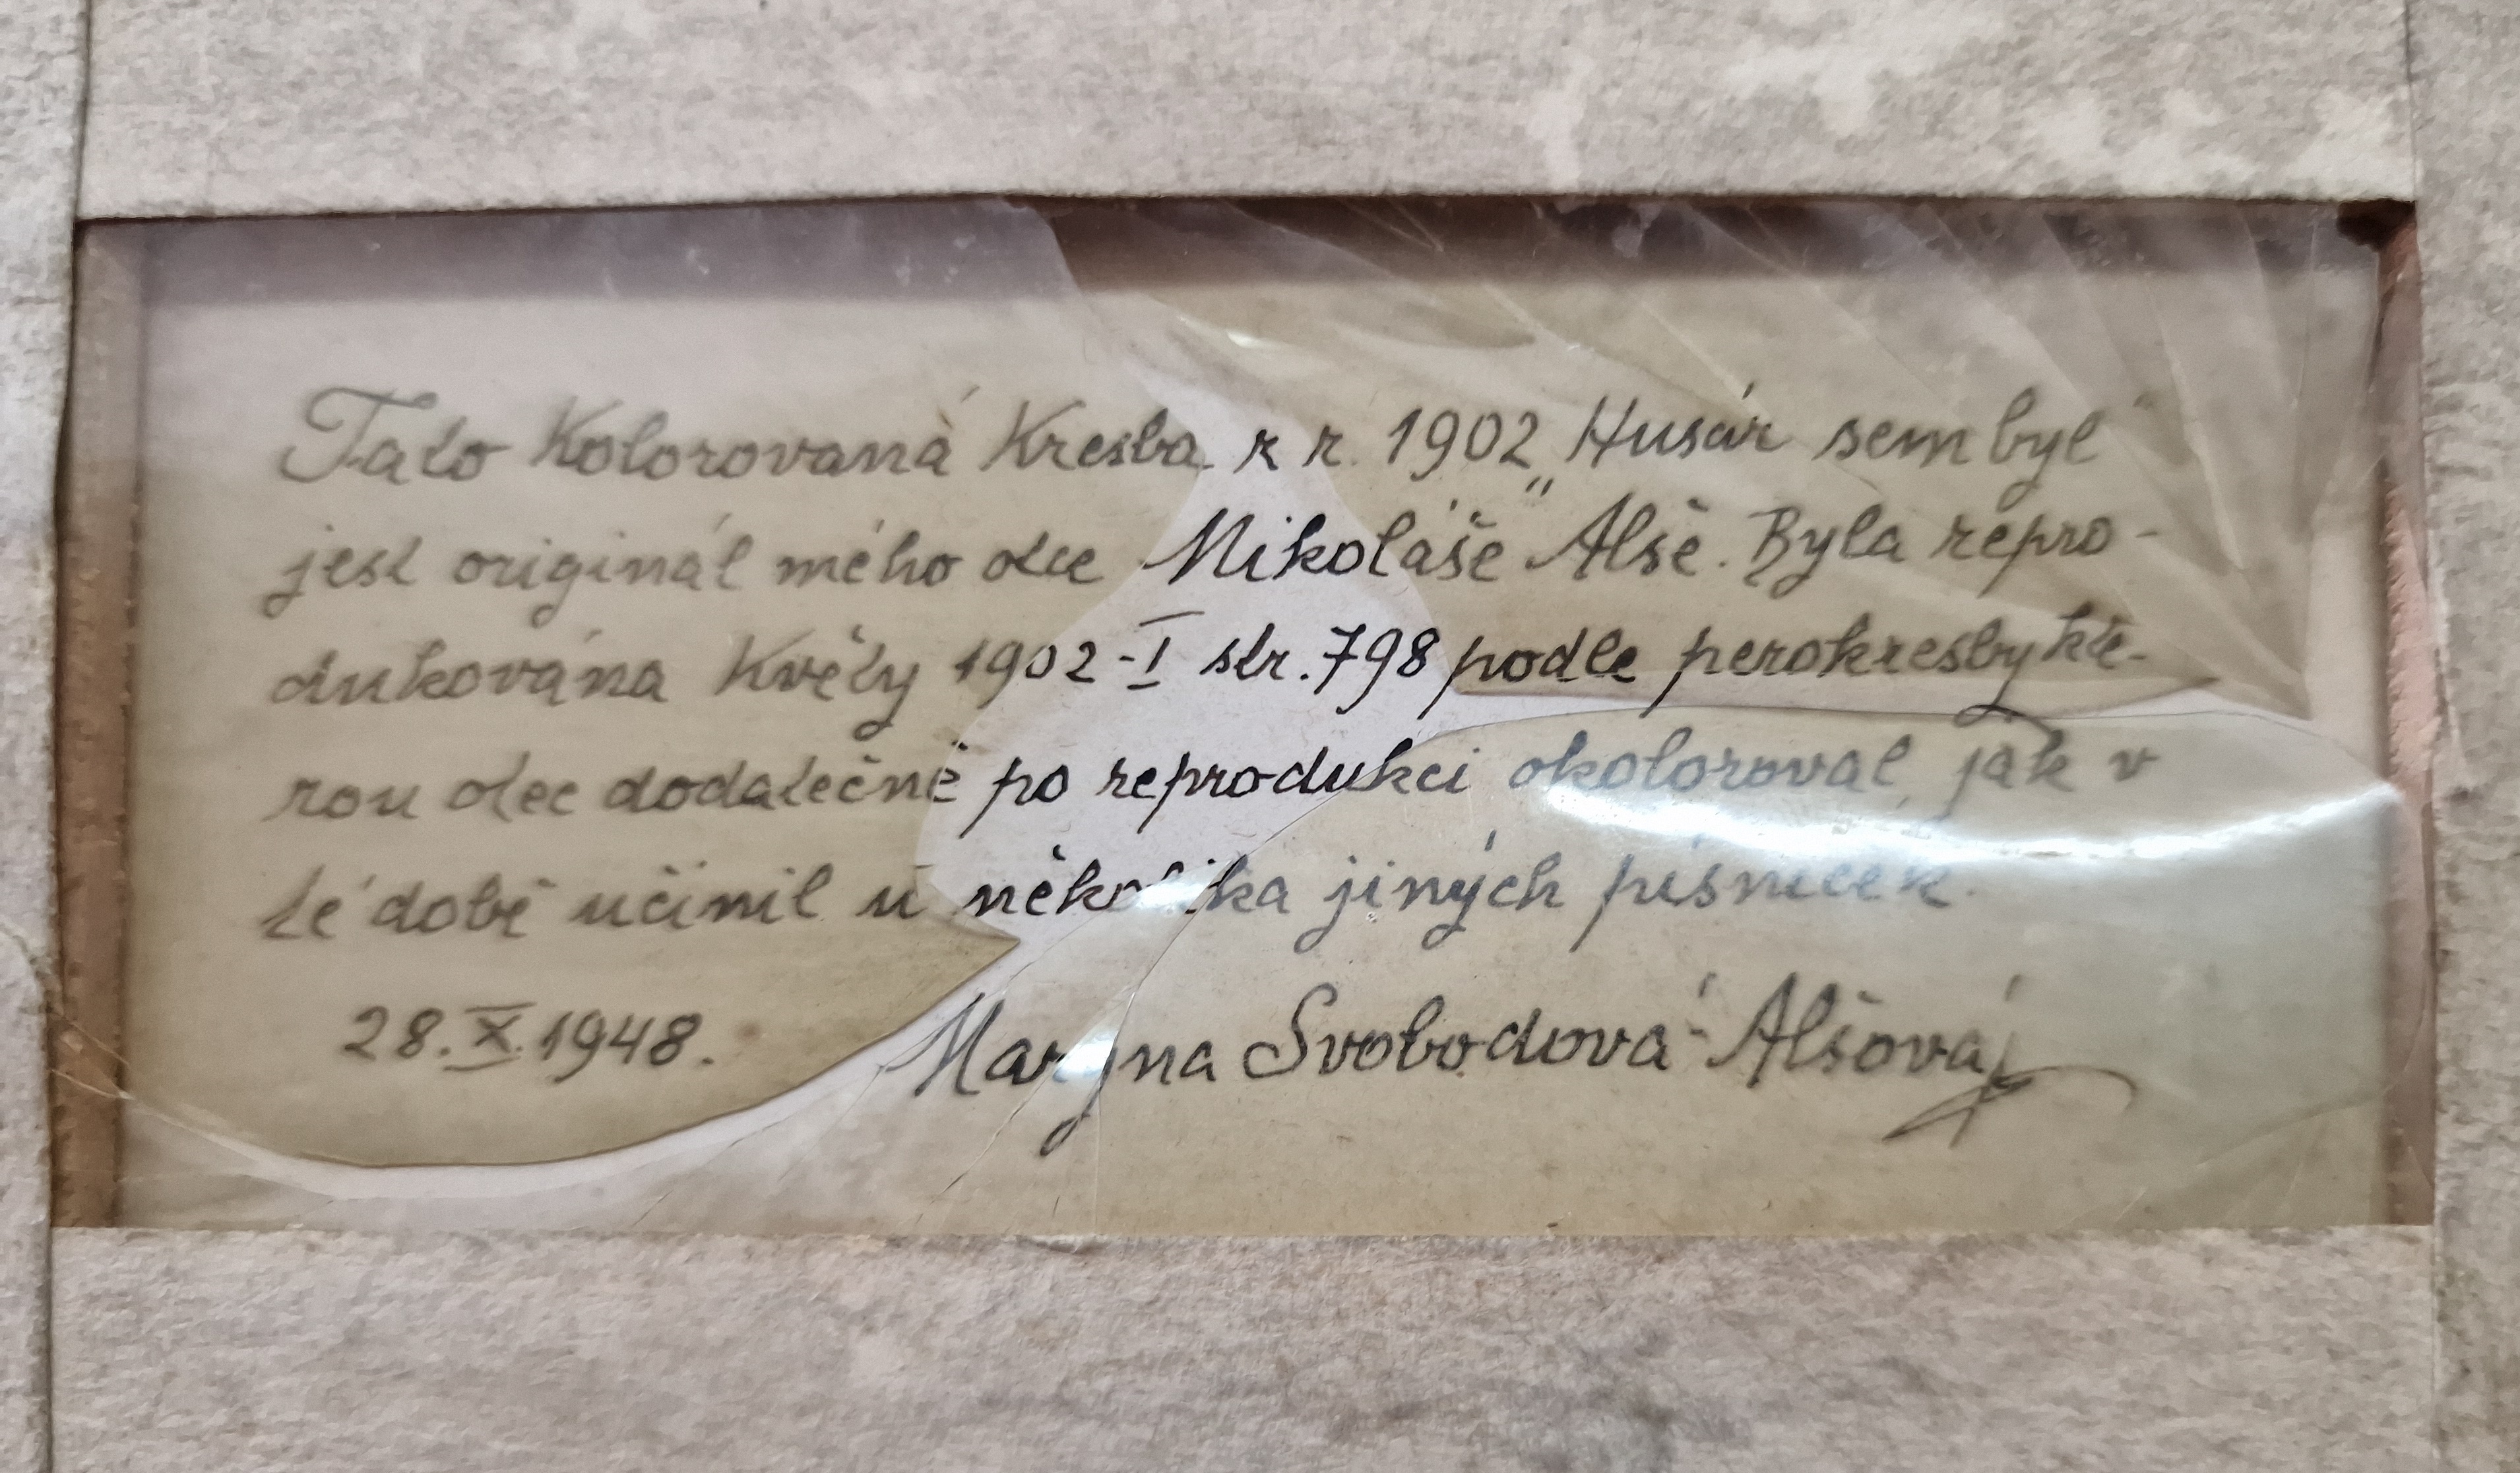 Tato kolorovaná kresba z r. 1902 „Husár sem byl“
jest originál mého otce Mikoláše Alše. Byla repro-
dukována Květy 1902-I str. 798 podle perokresby kte-
rou otec dodatečně po reprodukci okoloroval, jak v
té době učinil u několika jiných písniček.
28.X.1948. Maryna Svobodová-Alšová